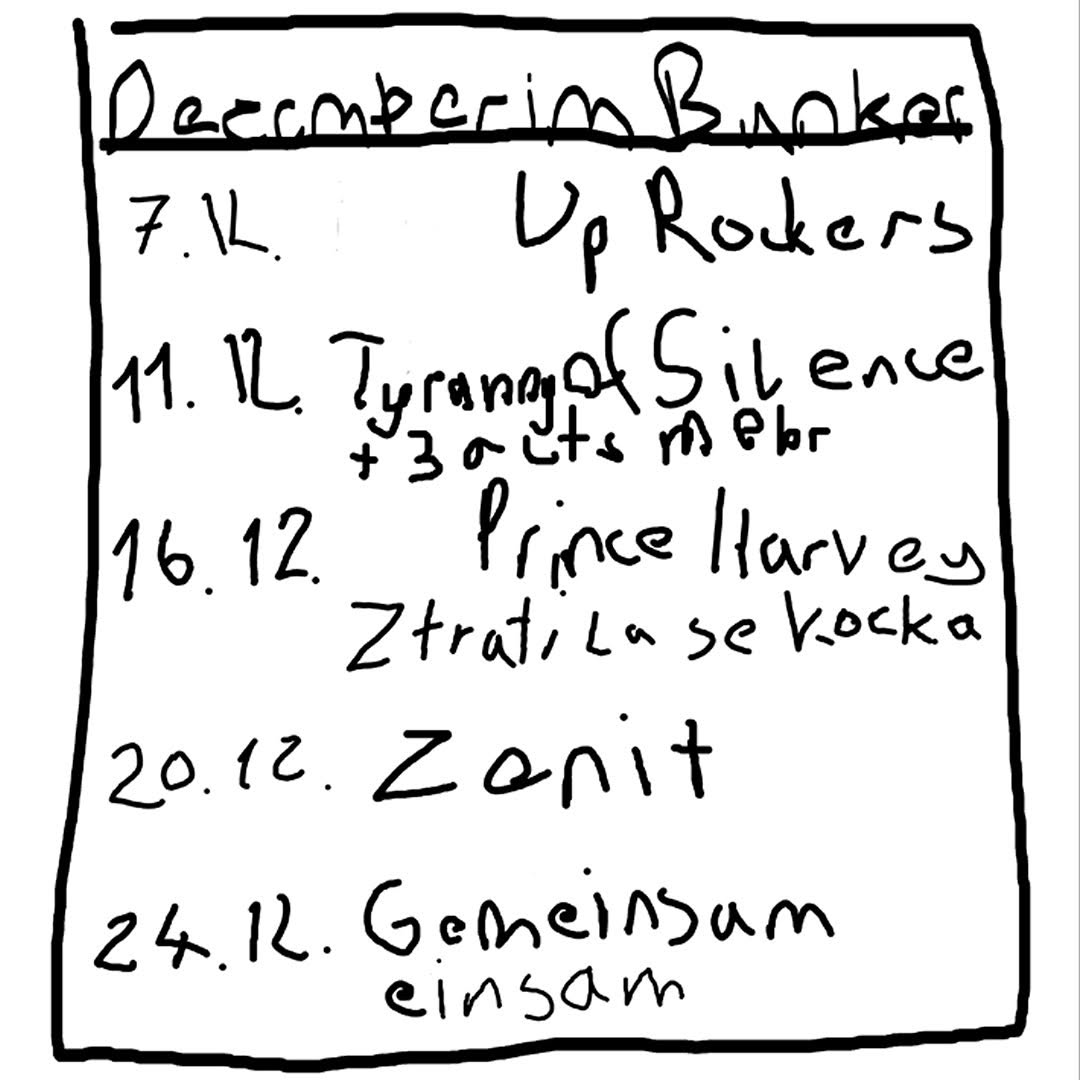 Decemberim Bunker
7.12. Up Rockers
11.12. Tyranny of Silence
+ 3 acts mehr
16.12. Prince Harvey
Ztratila se kocka
20.12. Zanit
24.12. Gemeinsam
einsam